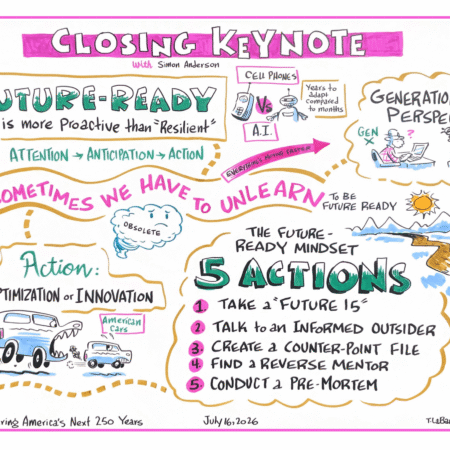 CLOSING KEYNOTE
with Simon Anderson
UTURE-READY
is more Proactive than "Resilient"
ATTENTION → ANTICIPATION → ACTION
CELL PHONES
Vs
A.I.
Years to
adapt
compared
to months
EVERYTHING'S MOVING FASTER
GENERATIO
PERSPE
GEN
X
?
OMETIMES WE HAVE TO UNLEARN
TO BE
FUTURE READY
OBSOLETE
Action:
TIMIZATION or INNOVATION
American
Cars
THE FUTURE-
READY MINDSET
5 ACTIONS
1 TAKE a "FUTURE 15"
2 TALK to an INFORMED OUTSIDER
3 CREATE a COUNTER-POINT FILE
4 FIND a REVERSE MENTOR
5 CONDUCT a PRE-MORTEM
ring America's Next 250 Years
July 16, 2026
T.LaBa